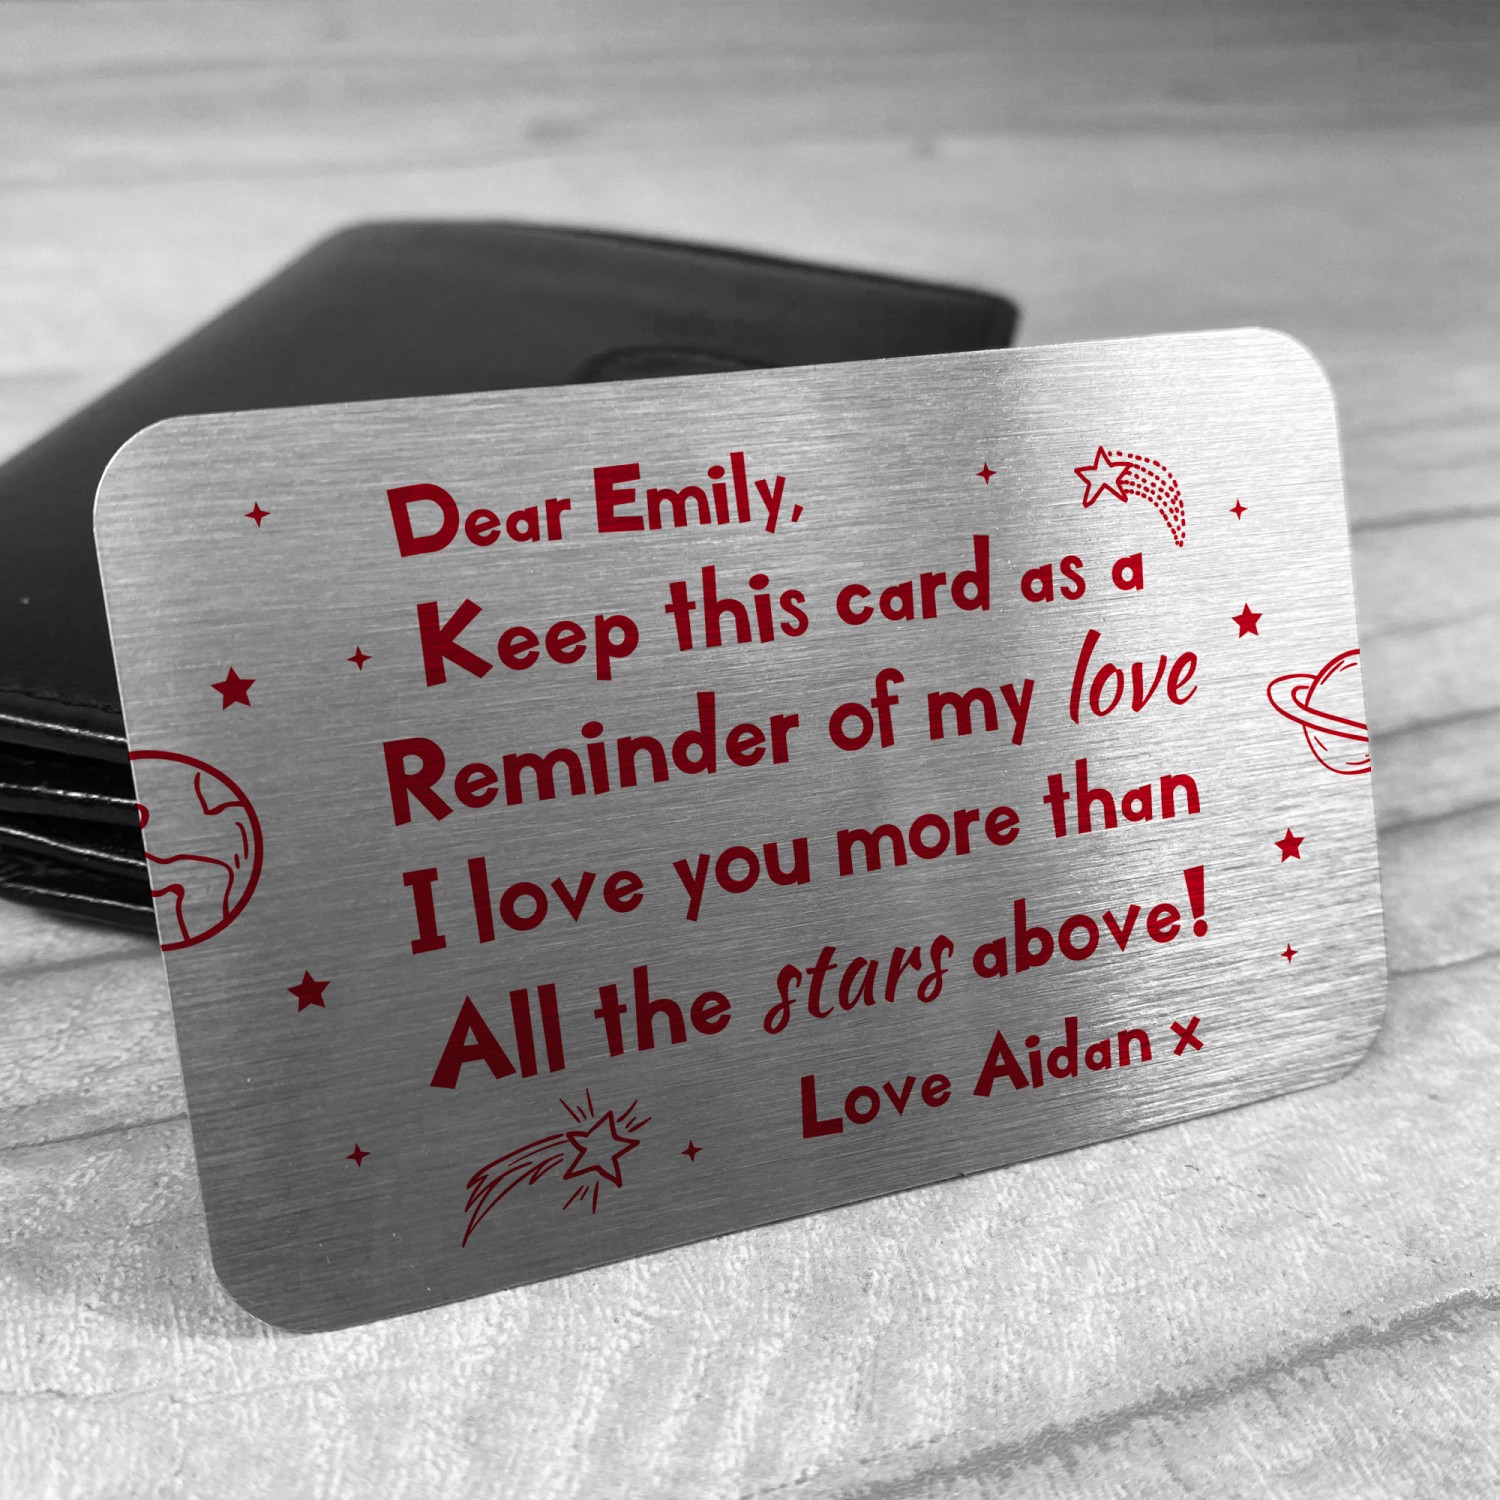 Dear Emily,
Keep this card as a
Reminder of my love
I love you more than
All the stars above!
Love Aidan x